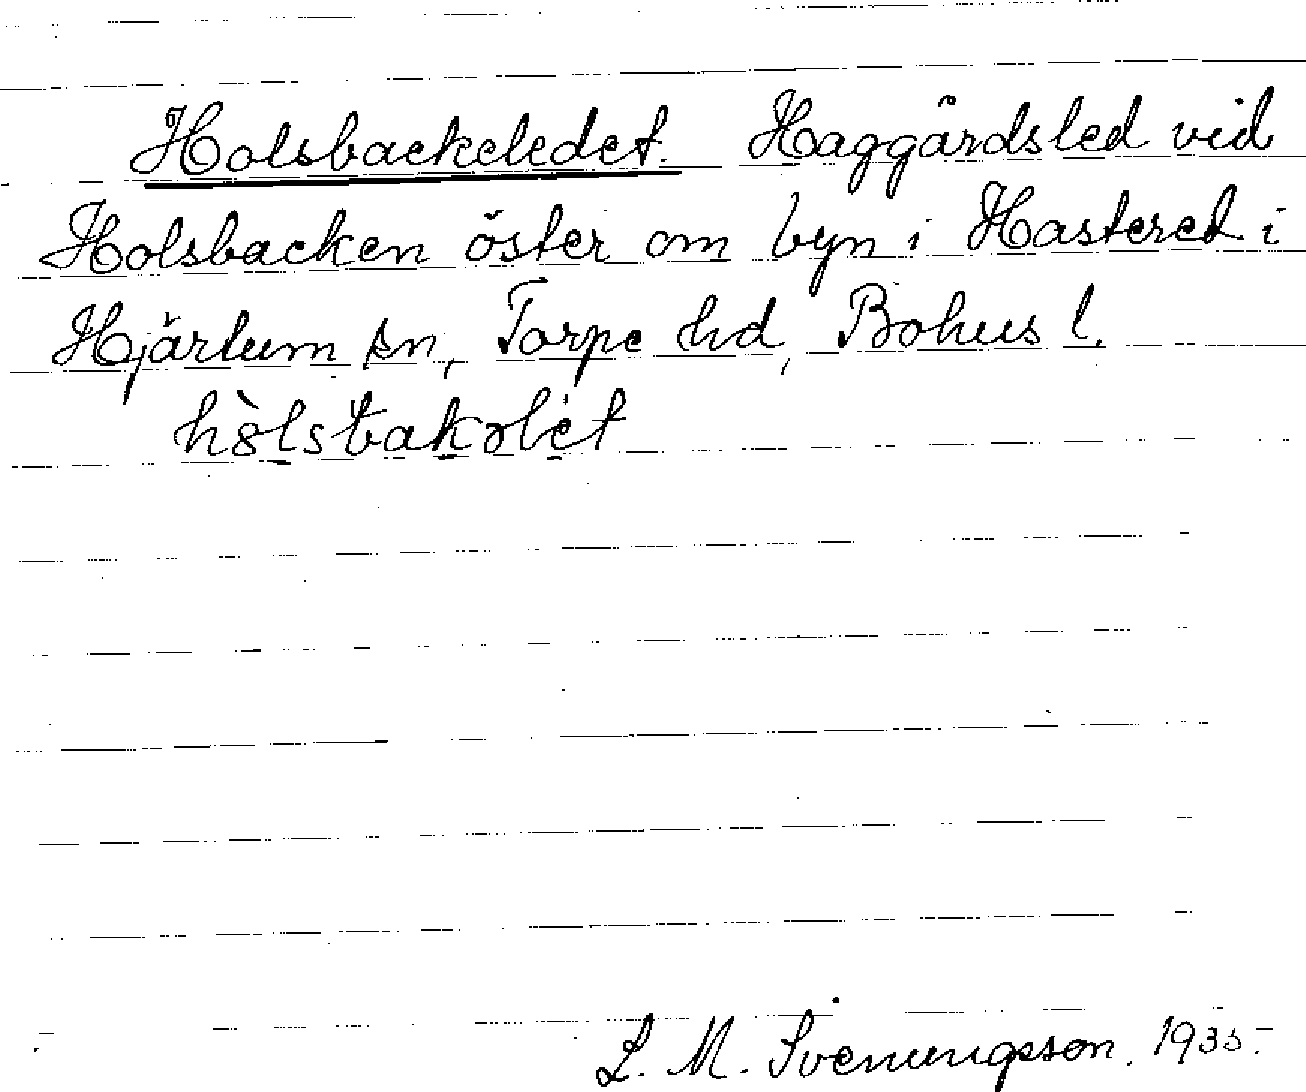 Holsbackeledet. Haggårdsled vid
Holsbacken öster om byn i Hasteret i
Hjärtum sn, Torpe hd, Bohus l.
L. M. Svenungsson. 1935.